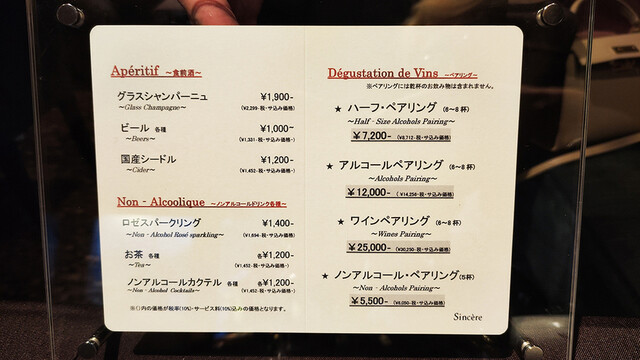 Apéritif ～食前酒～
グラスシャンパーニュ ¥1,900-
～Glass Champagne～ (¥2,299-税・サ込み価格)
ビール 各種 ¥1,000-
～Beers～ (¥1,331-税・サ込み価格)
国産シードル ¥1,200-
～Cider～ (¥1,452-税・サ込み価格)
Non - Alcoolique ～ノンアルコールドリンク各種～
ロゼスパークリング ¥1,400-
～Non - Alcohol Rosé sparkling～ (¥1,694-税・サ込み価格)
お茶 各種 各¥1,200-
～Tea～ (¥1,452-税・サ込み価格-)
ノンアルコールカクテル 各種 各¥1,200-
～Non - Alcohol Cocktails～ (¥1,452-税・サ込み価格-)
※()内の価格が税率(10%)・サービス料(10%)込みの価格となります。
Dégustation de Vins ～ペアリング～
※ペアリングには乾杯のお飲み物は含まれません。
★ ハーフ・ペアリング (6～8杯)
～Half - Size Alcohols Pairing～
¥7,200- (¥8,712-税・サ込み価格)
★ アルコールペアリング (6～8杯)
～Alcohols Pairing～
¥12,000- (¥14,256-税・サ込み価格)
★ ワインペアリング (6～8杯)
～Wines Pairing～
¥25,000- (¥30,250-税・サ込み価格)
★ ノンアルコール・ペアリング(5杯)
～Non - Alcohols Pairing～
¥5,500- (¥6,050-税・サ込み価格)
Sincère